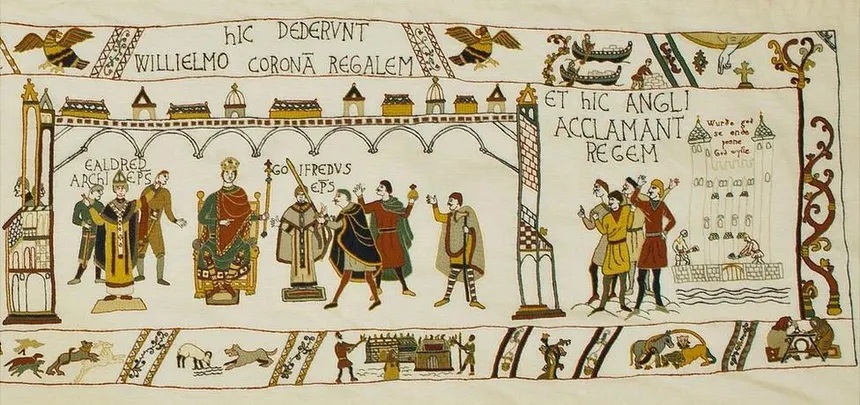 hIC DEDERVNT
WILLIELMO CORONĀ REGALEM
EALDRED
ARCHI EP̄S
GO IFREDVS
EP̄S
ET hIC ANGLI
ACCLAMANT
REGEM
Wurde god
se ende
þonne
God wylle